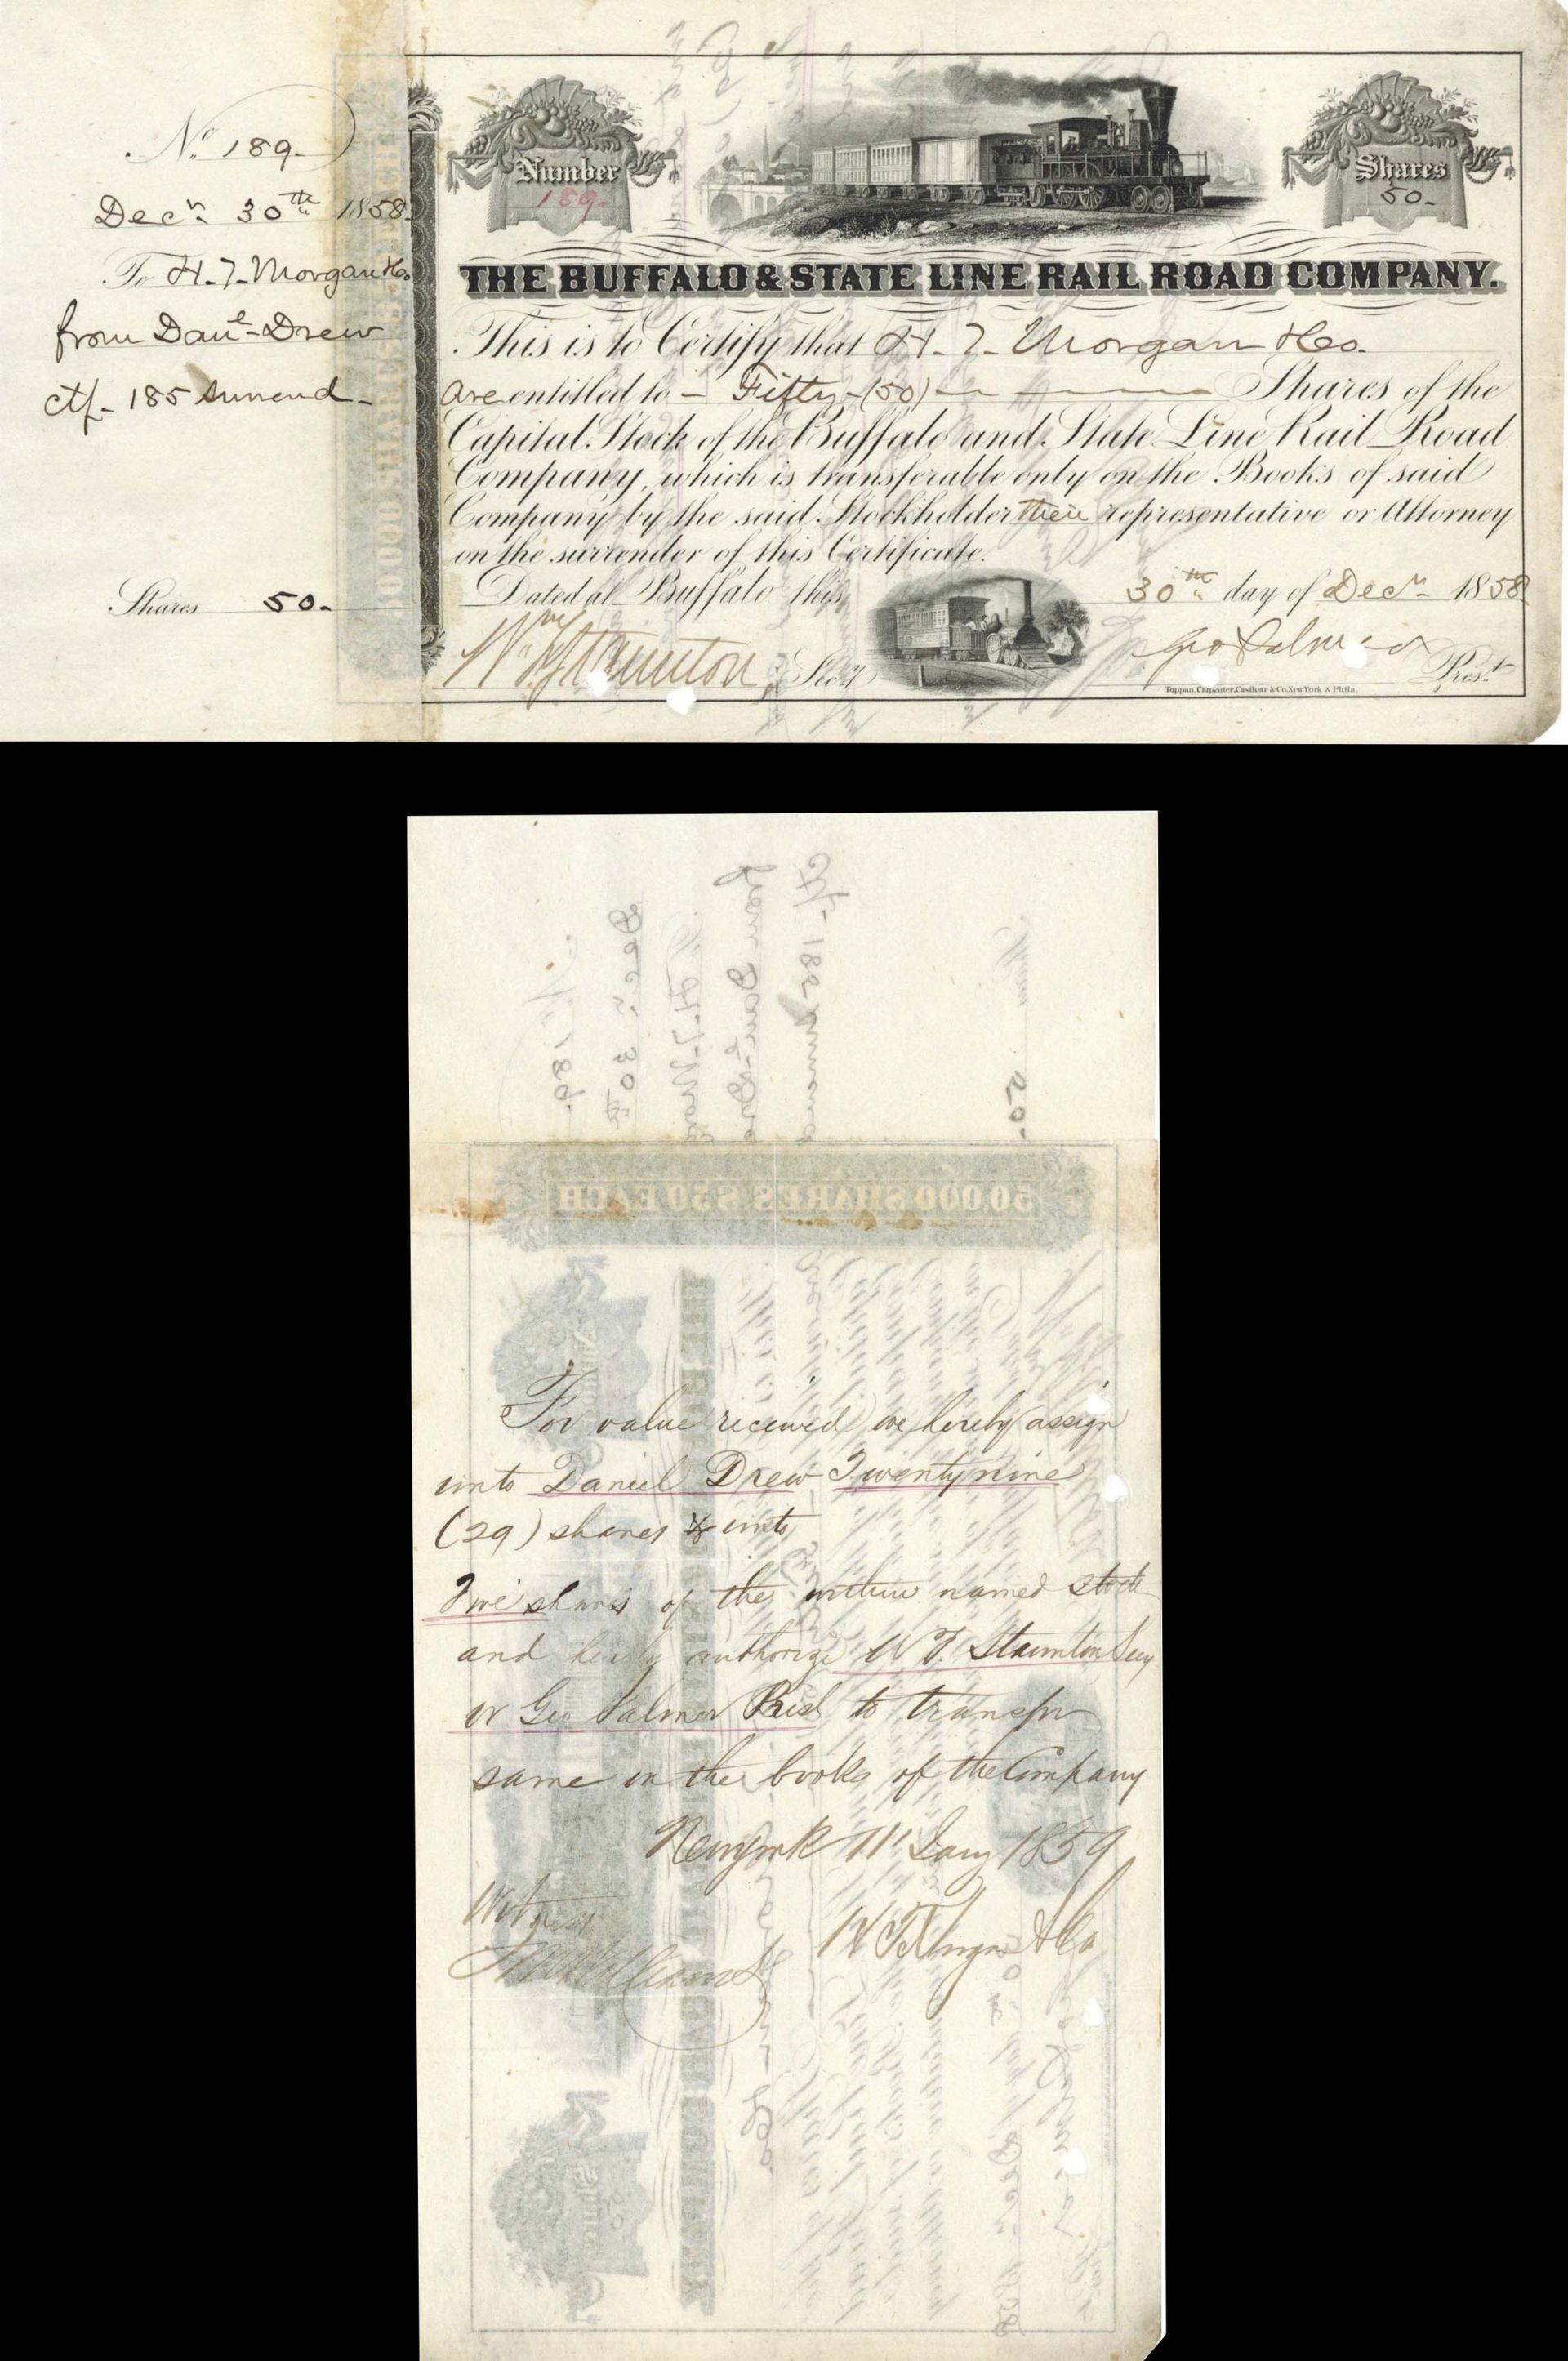 No. 189.
Decr. 30th 1858.
To H. T. Morgan & Co.
from Danl. Drew
ctf. 185 surrend.
Shares 50.
Number
189.
Shares
50.
THE BUFFALO & STATE LINE RAIL ROAD COMPANY.
This is to Certify that H. T. Morgan & Co.
are entitled to - Fifty - (50) - Shares of the
Capital Stock of the Buffalo and State Line Rail Road
Company, which is transferable only on the Books of said
Company by the said Stockholder their representative or Attorney
on the surrender of this Certificate.
Dated at Buffalo this 30th day of Decr. 1858
Wm. Staunton, Secy. Geo Palmer Prest.
Toppan, Carpenter, Casilear & Co. New York & Phila.
50.000 SHARES. $50 EACH
For value received we hereby assign
unto Daniel Drew Twenty nine
(29) shares & unto
shares of the within named stock
and hereby authorize W T. Staunton Secy
or Geo Palmer Prest to transfer
same on the books of the Company
New York 11 Jany 1859
Witness
H T Morgan & Co
Williams